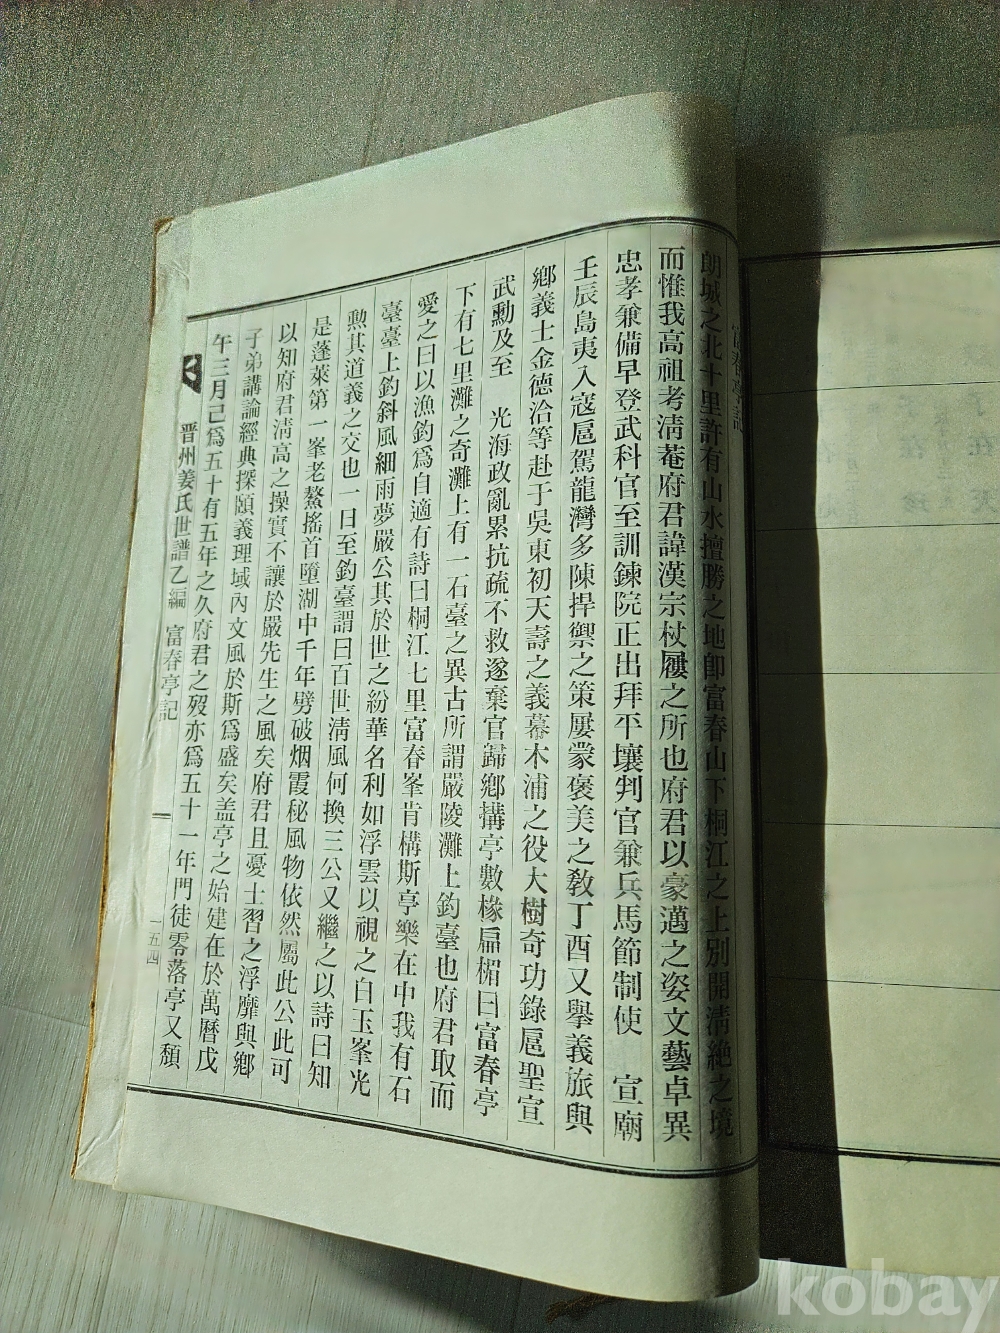 富春亭記
朗城之北十里許有山水擅勝之地卽富春山下桐江之上別開淸絶之境
而惟我高祖考淸菴府君諱漢宗杖屨之所也府君以豪邁之姿文藝卓異
忠孝兼備早登武科官至訓鍊院正出拜平壤判官兼兵馬節制使 宣廟
壬辰島夷入寇扈駕龍灣多陳捍禦之策屢蒙褒美之敎丁酉又擧義旅與
鄕義士金德洽等赴于吳東初天壽之義幕木浦之役大樹奇功錄扈聖宣
武勳及至 光海政亂累抗疏不救遂棄官歸鄕搆亭數椽扁楣曰富春亭
下有七里灘之奇灘上有一石臺之異古所謂嚴陵灘上釣臺也府君取而
愛之曰以漁釣爲自適有詩曰桐江七里富春峯肯構斯亭樂在中我有石
臺臺上釣斜風細雨夢嚴公其於世之紛華名利如浮雲以視之白玉峯光
勲其道義之交也一日至釣臺謂曰百世淸風何換三公又繼之以詩曰知
是蓬萊第一峯老鰲搖首墮湖中千年劈破烟霞秘風物依然屬此公此可
以知府君淸高之操實不讓於嚴先生之風矣府君且憂士習之浮靡與鄕
子弟講論經典探頤義理域內文風於斯爲盛矣盖亭之始建在於萬曆戊
午三月己爲五十有五年之久府君之歿亦爲五十一年門徒零落亭又頹
晋州姜氏世譜乙編 富春亭記
一五四
kobay